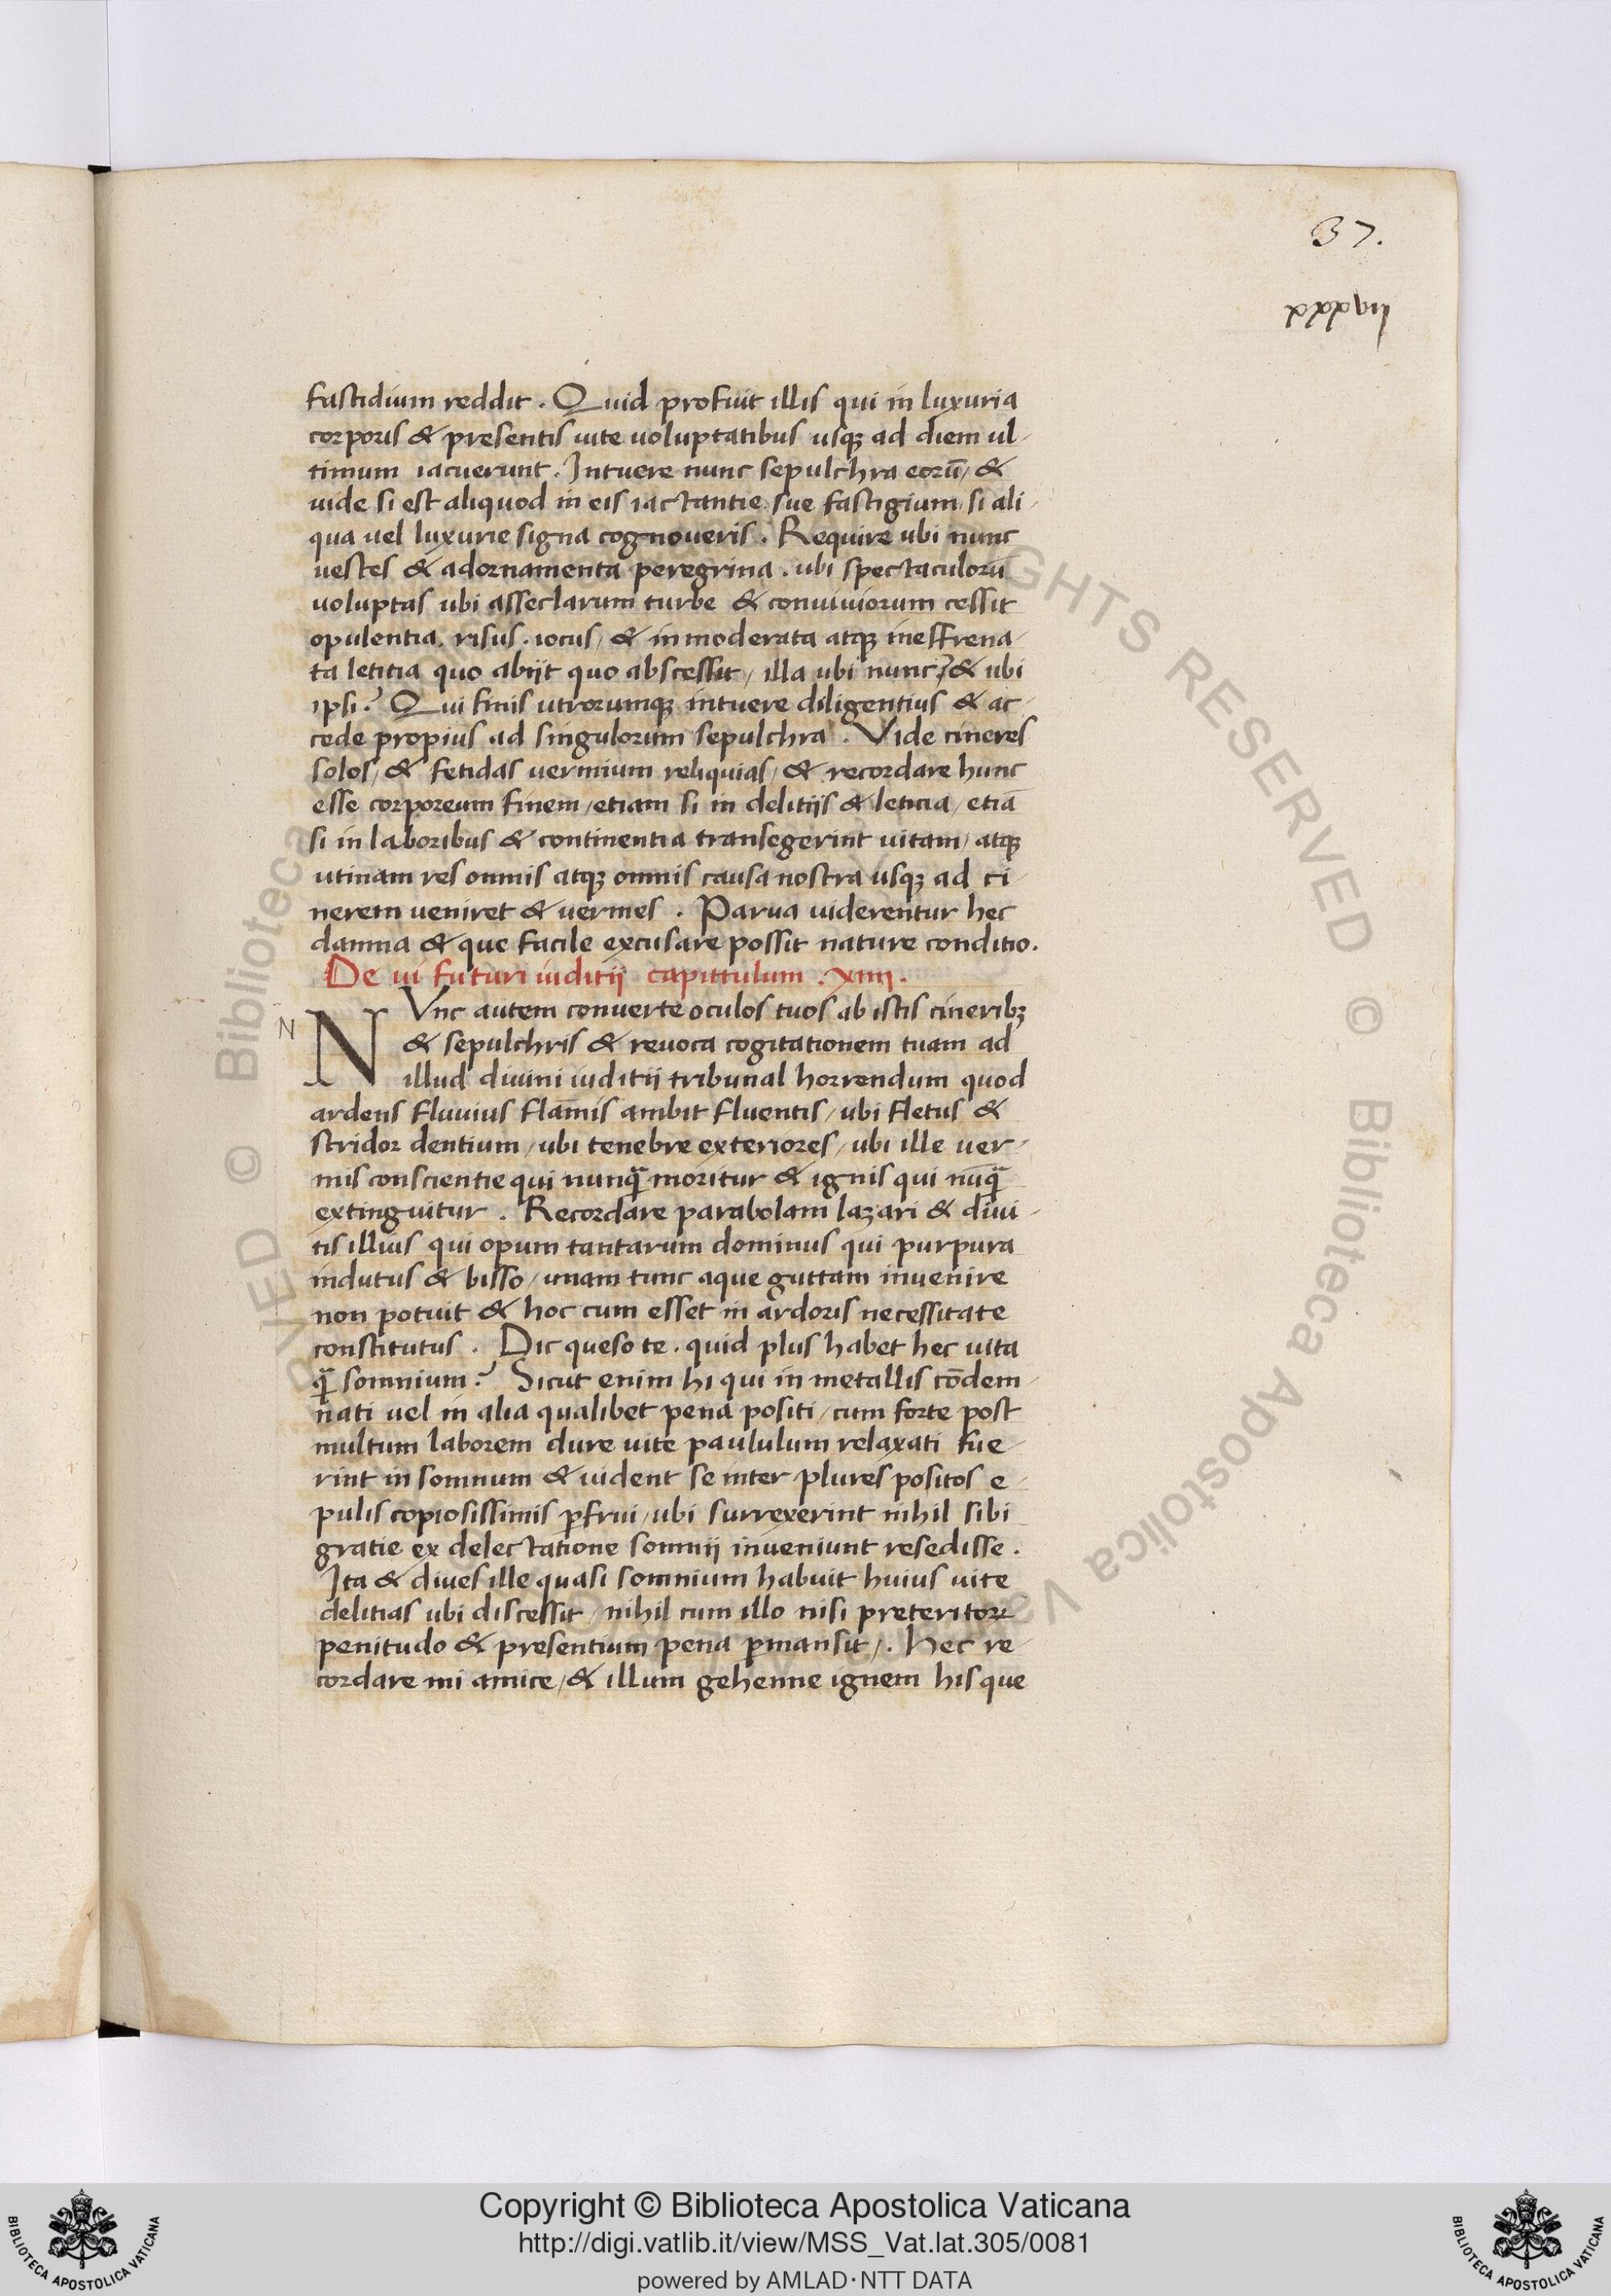 37.
xxxvii
fastidium reddit. Quid profuit illis qui in luxuria
corporis & presentis uite uoluptatibus usqꝫ ad diem ul-
timum iacuerunt. Intuere nunc sepulchra eorū/ &
uide si est aliquod in eis iactantie sue fastigium si ali-
qua uel luxurie signa cognoueris. Require ubi nunc
uestes & adornamenta peregrina. ubi spectaculorū
uoluptas ubi asseclarum turbe & conuiuiorum cessit
opulentia. risus. iocus/ & inmoderata atqꝫ ineffrena-
ta letitia quo abiit quo abscessit/ illa ubi nunc? & ubi
ipsi? Qui finis utrorumqꝫ intuere diligentius & ac-
cede propius ad singulorum sepulchra. Vide cineres
solos/ & fetidas uermium reliquias/ & recordare hunc
esse corporeum finem/ etiam si in delitiis & leticia/ etiā
si in laboribus & continentia transegerint uitam/ atqꝫ
utinam res omnis atqꝫ omnis causa nostra usqꝫ ad ci-
nerem ueniret & uermes. Parua uiderentur hec
damna & que facile excusare possit nature conditio.
De ui futuri iuditii capittulum. xiiii.
N
NVnc autem conuerte oculos tuos ab istis cineribꝫ
& sepulchris & reuoca cogitationem tuam ad
illud diuini iuditii tribunal horrendum quod
ardens fluuius flāmis ambit fluentis/ ubi fletus &
stridor dentium/ ubi tenebre exteriores/ ubi ille uer-
mis conscientie qui nunq̄ moritur & ignis qui nūq̄
extinguitur. Recordare parabolam lazari & diui-
tis illius qui opum tantarum dominus qui purpura
indutus & bisso/ unam tunc aque guttam inuenire
non potuit & hoc cum esset in ardoris necessitate
constitutus. Dic queso te. quid plus habet hec uita
q̄ somnium? Sicut enim hi qui in metallis cōdem-
nati uel in alia qualibet pena positi/ cum forte post
multum laborem dure uite paululum relaxati fue-
rint in somnum & uident se inter plures positos e-
pulis copiosissimis ꝑfrui/ ubi surrexerint nihil sibi
gratie ex delectatione somnii inueniunt resedisse.
Ita & diues ille quasi somnium habuit huius uite
delitias ubi discessit/ nihil cum illo nisi preteritoꝝ
penitudo & presentium pena ꝑmansit/. Hec re-
cordare mi amice/ & illum gehenne ignem his que
Copyright © Biblioteca Apostolica Vaticana
http://digi.vatlib.it/view/MSS_Vat.lat.305/0081
powered by AMLAD·NTT DATA